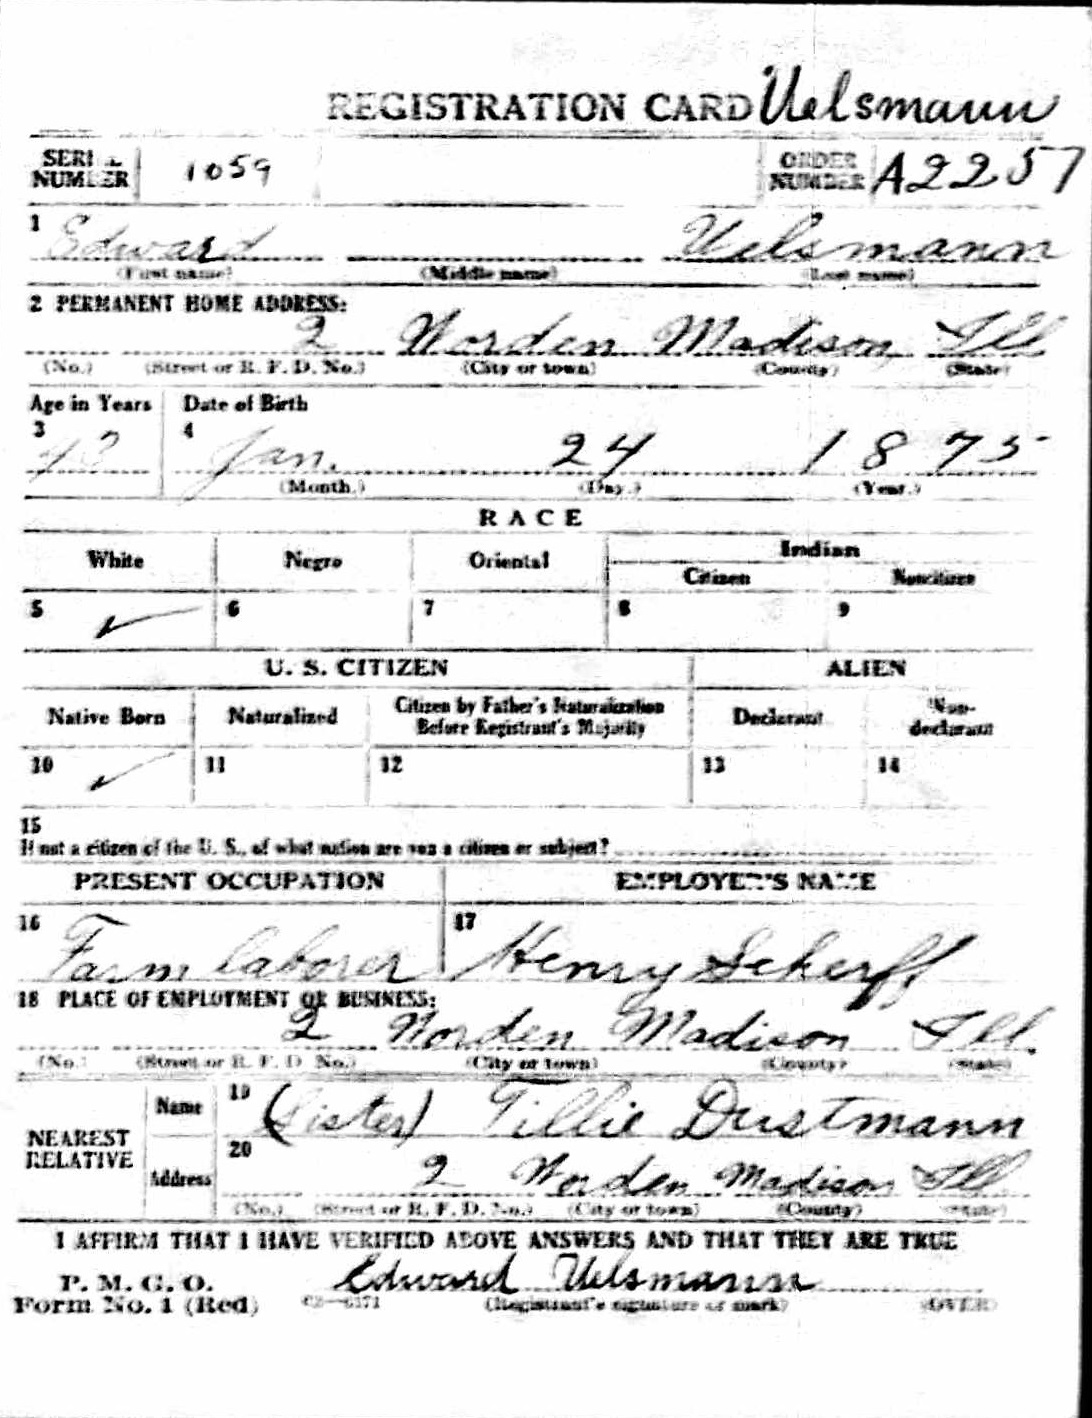 REGISTRATION CARD Uelsmann
SERIAL NUMBER 1059 ORDER NUMBER A2257
1 Edward Uelsmann
(First name) (Middle name) (Last name)
2 PERMANENT HOME ADDRESS:
2 Worden Madison Ill
(No.) (Street or R. F. D. No.) (City or town) (County) (State)
Age in Years Date of Birth
3 43 4 Jan. 24 1875
(Month.) (Day.) (Year.)
RACE
White Negro Oriental Indian
Citizen Noncitizen
5 ✓ 6 7 8 9
U. S. CITIZEN ALIEN
Native Born Naturalized Citizen by Father's Naturalization Before Registrant's Majority Declarant Non-declarant
10 ✓ 11 12 13 14
15
If not a citizen of the U. S., of what nation are you a citizen or subject?
PRESENT OCCUPATION EMPLOYER'S NAME
16 Farm laborer 17 Henry Scherff
18 PLACE OF EMPLOYMENT OR BUSINESS:
2 Worden Madison Ill.
(No.) (Street or R. F. D. No.) (City or town) (County) (State)
NEAREST RELATIVE
Name 19 (Sister) Tillie Dustmann
Address 20 2 Worden Madison Ill
(No.) (Street or R. F. D. No.) (City or town) (County) (State)
I AFFIRM THAT I HAVE VERIFIED ABOVE ANSWERS AND THAT THEY ARE TRUE
P. M. G. O.
Form No. 1 (Red) Edward Uelsmann
(Registrant's signature or mark) (OVER)